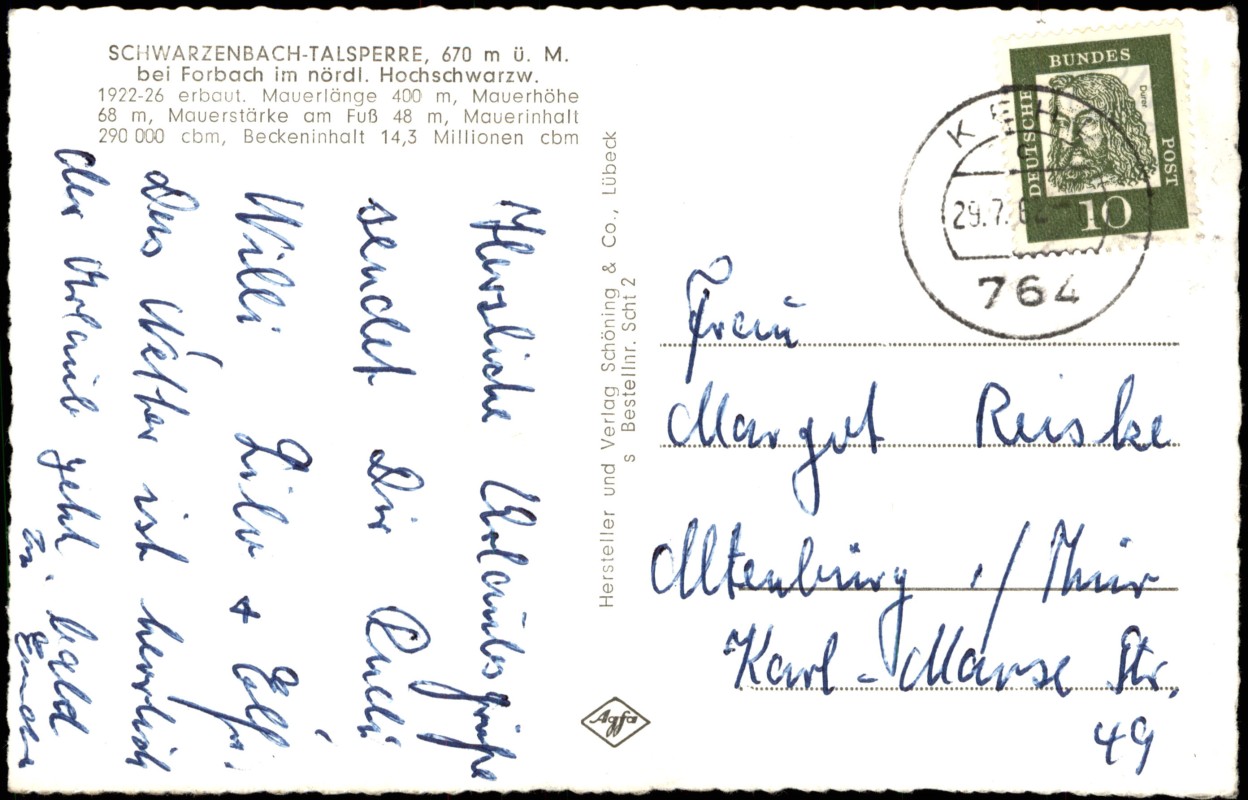 SCHWARZENBACH-TALSPERRE, 670 m ü. M.
bei Forbach im nördl. Hochschwarzw.
1922-26 erbaut. Mauerlänge 400 m, Mauerhöhe
68 m, Mauerstärke am Fuß 48 m, Mauerinhalt
290 000 cbm, Beckeninhalt 14,3 Millionen cbm
Herzliche Urlaubsgrüße
sendet Dir
Willi +
Das Wetter ist herrlich
der Urlaub geht bald
zu Ende
Hersteller und Verlag Schöning & Co., Lübeck
s Bestellnr. Scht 2
Agfa
DEUTSCHE BUNDES POST
Dürer
10
KEHL
29.7.62
764
Frau
Margot Reiske
Altenburg ./ Thür
Karl-Marx Str.
49